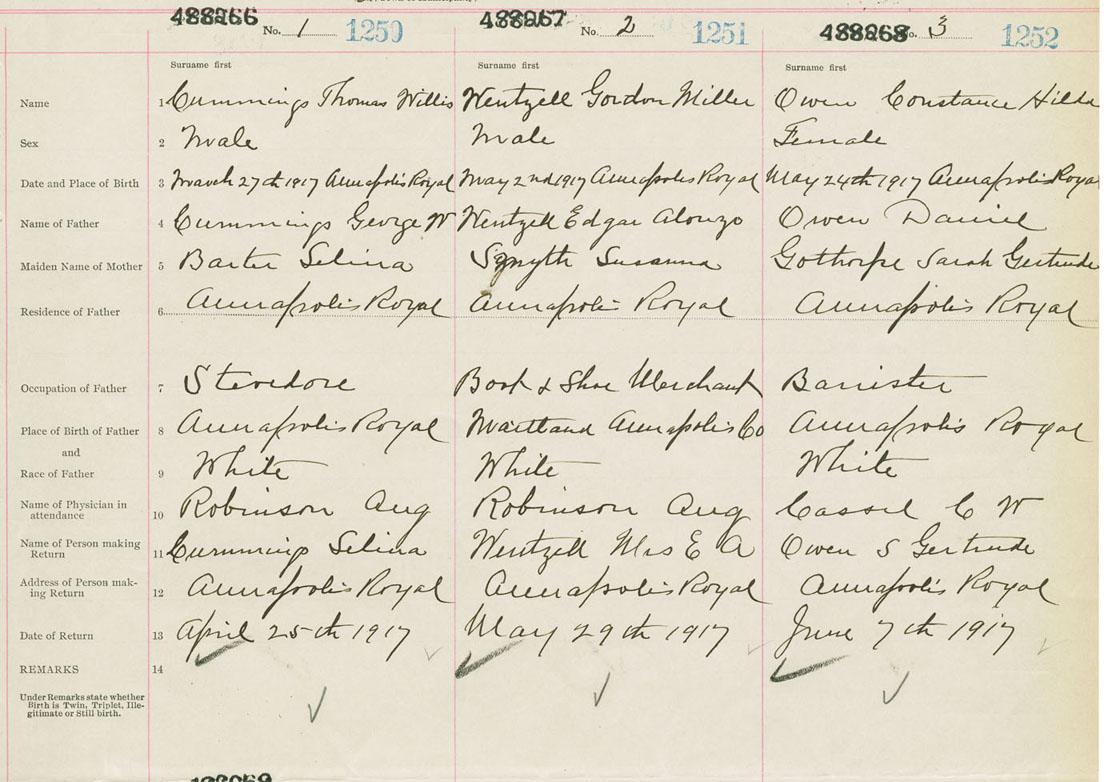 488266 488267 488268
No. 1 1250 No. 2 1251 No. 3 1252
Surname first Surname first Surname first
Name 1 Cummings Thomas Willis Wentzell Gordon Miller Owen Constance Hilda
Sex 2 Male Male Female
Date and Place of Birth 3 March 27th 1917 Annapolis Royal May 2nd 1917 Annapolis Royal May 24th 1917 Annapolis Royal
Name of Father 4 Cummings George W Wentzell Edgar Alonzo Owen Daniel
Maiden Name of Mother 5 Barter Selina Smyth Susanna Gothorpe Sarah Gertrude
Residence of Father 6 Annapolis Royal Annapolis Royal Annapolis Royal
Occupation of Father 7 Stevedore Boot & Shoe Merchant Barrister
Place of Birth of Father 8 Annapolis Royal Maitland Annapolis Co Annapolis Royal
and
Race of Father 9 White White White
Name of Physician in
attendance 10 Robinson Aug Robinson Aug Cassel C W
Name of Person making
Return 11 Cummings Selina Wentzell Mrs E A Owen S Gertrude
Address of Person mak-
ing Return 12 Annapolis Royal Annapolis Royal Annapolis Royal
Date of Return 13 April 25th 1917 May 29th 1917 June 7th 1917
REMARKS 14
Under Remarks state whether
Birth is Twin, Triplet, Ille-
gitimate or Still birth.